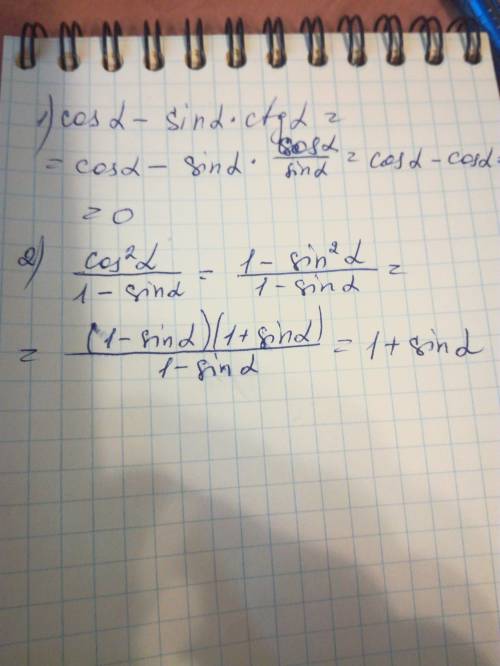 1) cos α - sin α · ctg α =
= cos α - sin α · cos α / sin α = cos α - cos α =
= 0
2) cos² α / 1 - sin α = 1 - sin² α / 1 - sin α =
= (1 - sin α)(1 + sin α) / 1 - sin α = 1 + sin α